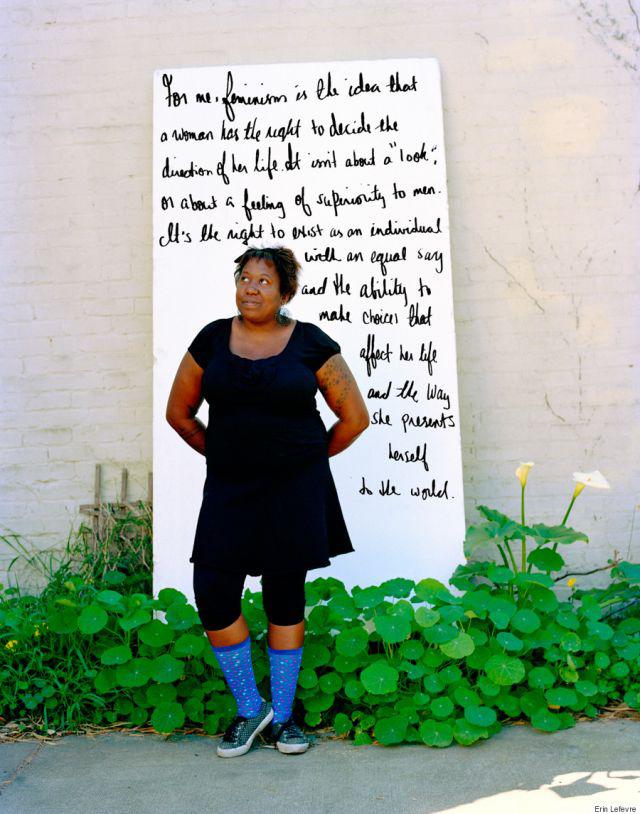 For me, feminism is the idea that
a woman has the right to decide the
direction of her life. It isn't about a "look",
or about a feeling of superiority to men.
It's the right to exist as an individual
with an equal say
and the ability to
make choices that
affect her life
and the way
she presents
herself
to the world.
Erin Lefevre